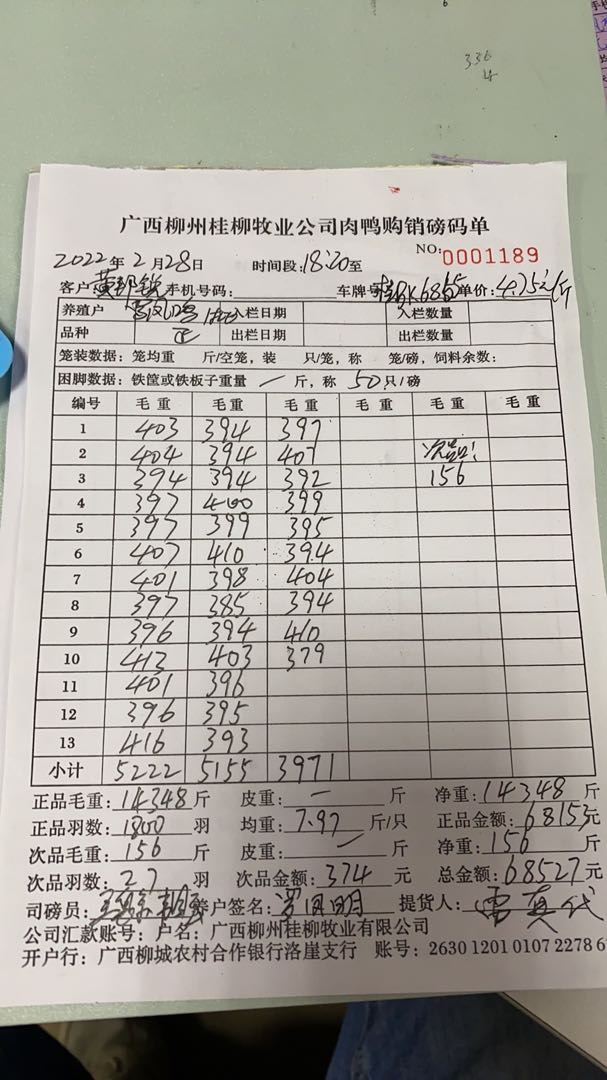 336
4
广西柳州桂柳牧业公司肉鸭购销磅码单
NO:0001189
2022年 2月28日 时间段:18:20至
客户: 手机号码: 车牌号 K6865 单价:4.752/斤
养殖户 入栏日期 入栏数量
品种 正 出栏日期 出栏数量
笼装数据: 笼均重 斤/空笼, 装 只/笼, 称 笼/磅, 饲料余数:
困脚数据: 铁筐或铁板子重量 一 斤, 称 50只/磅
编号 毛重 毛重 毛重 毛重 毛重 毛重
1 403 394 397
2 404 394 407 次品:
3 394 394 392 156
4 397 400 399
5 397 399 395
6 407 410 394
7 401 398 404
8 397 385 394
9 396 394 410
10 413 403 379
11 401 396
12 396 395
13 416 393
小计 5222 5155 3971
正品毛重:14348斤 皮重: 一 斤 净重:14348斤
正品羽数:1800羽 均重:7.97斤/只 正品金额:68153元
次品毛重:156斤 皮重: 一 斤 净重:156斤
次品羽数:27羽 次品金额:374元 总金额:68527元
司磅员: 养户签名: 明 提货人: 代
公司汇款账号: 户名: 广西柳州桂柳牧业有限公司
开户行: 广西柳城农村合作银行洛崖支行 账号: 2630 1201 0107 2278 6